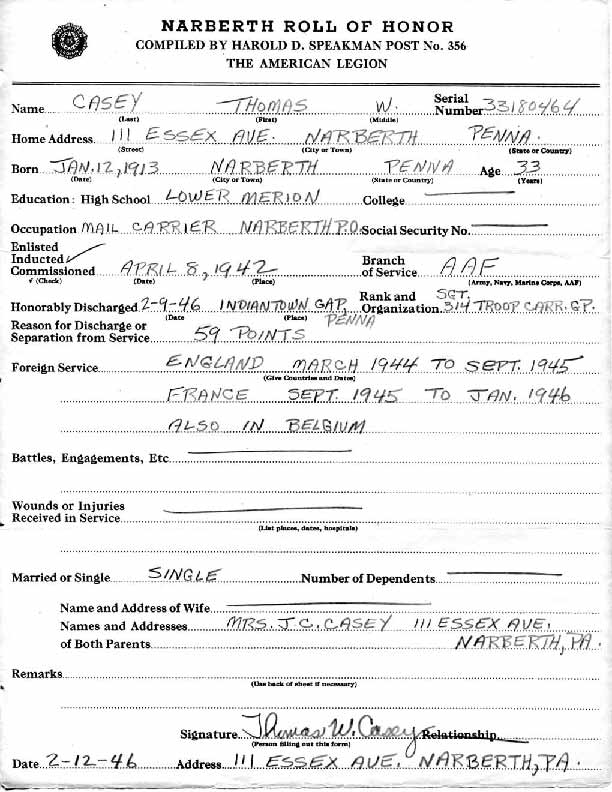 NARBERTH ROLL OF HONOR
COMPILED BY HAROLD D. SPEAKMAN POST No. 356
THE AMERICAN LEGION
Name CASEY THOMAS W. Serial Number 33180464
(Last) (First) (Middle)
Home Address 111 ESSEX AVE. NARBERTH PENNA.
(Street) (City or Town) (State or Country)
Born JAN. 12, 1913 NARBERTH PENNA Age 33
(Date) (City or Town) (State or Country) (Years)
Education: High School LOWER MERION College
Occupation MAIL CARRIER NARBERTH P.O. Social Security No.
Enlisted
Inducted ✓
Commissioned APRIL 8, 1942 Branch of Service AAF
✓ (Check) (Date) (Place) (Army, Navy, Marine Corps, AAF)
Honorably Discharged 2-9-46 INDIANTOWN GAP, PENNA Rank and Organization SGT. 314 TROOP CARR. GP.
(Date (Place)
Reason for Discharge or
Separation from Service 59 POINTS
Foreign Service ENGLAND MARCH 1944 TO SEPT. 1945
(Give Countries and Dates)
FRANCE SEPT. 1945 TO JAN. 1946
ALSO IN BELGIUM
Battles, Engagements, Etc.
Wounds or Injuries
Received in Service
(List places, dates, hospitals)
Married or Single SINGLE Number of Dependents
Name and Address of Wife
Names and Addresses MRS. J. C. CASEY 111 ESSEX AVE.
of Both Parents NARBERTH, PA.
Remarks
(Use back of sheet if necessary)
Signature Thomas W. Casey Relationship
(Person filling out this form)
Date 2-12-46 Address 111 ESSEX AVE. NARBERTH, PA.